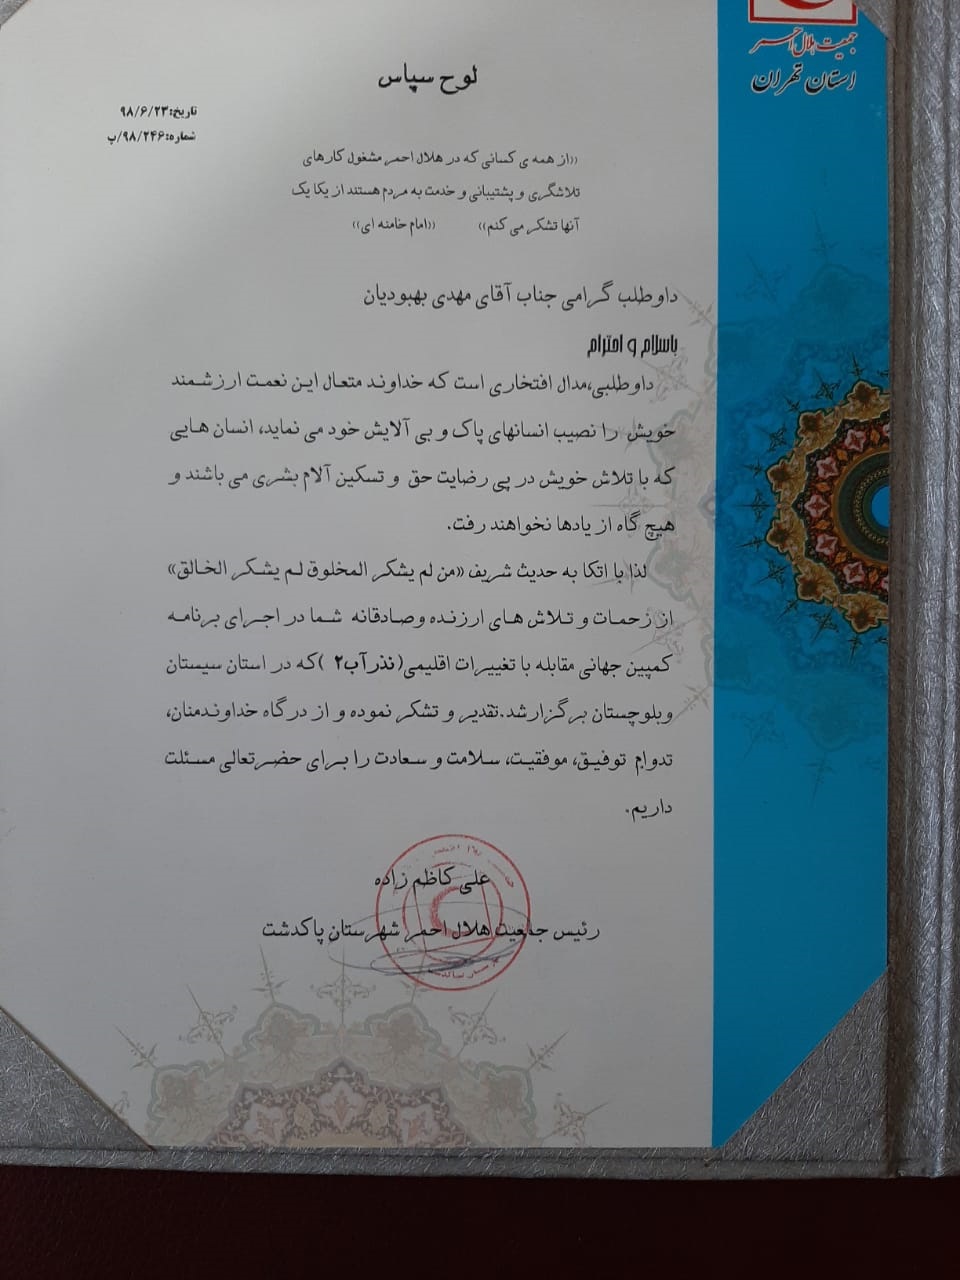 جمعیت هلال احمر
استان تهران
لوح سپاس
تاریخ:۹۸/۶/۲۳
شماره:۹۸/۲۴۶/ب
«از همه ی کسانی که در هلال احمر مشغول کارهای
تلاشگری و پشتیبانی و خدمت به مردم هستند از یکا یک
آنها تشکر می کنم» «امام خامنه ای»
داوطلب گرامی جناب آقای مهدی بهبودیان
باسلام و احترام
داوطلبی،مدال افتخاری است که خداوند متعال این نعمت ارزشمند
خویش را نصیب انسانهای پاک و بی آلایش خود می نماید، انسان هایی
که با تلاش خویش در پی رضایت حق و تسکین آلام بشری می باشند و
هیچ گاه از یادها نخواهند رفت.
لذا با اتکا به حدیث شریف «من لم یشکر المخلوق لم یشکر الخالق»
از زحمات و تلاش های ارزنده وصادقانه شما در اجرای برنامه
کمپین جهانی مقابله با تغییرات اقلیمی(نذرآب۲ )که در استان سیستان
وبلوچستان برگزارشد.تقدیر و تشکر نموده و از درگاه خداوندمنان،
تدوام توفیق، موفقیت، سلامت و سعادت را برای حضرتعالی مسئلت
داریم.
علی کاظم زاده
رئیس جمعیت هلال احمر شهرستان پاکدشت